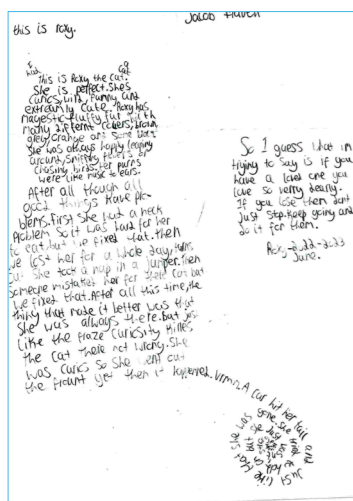 Jacob Haven
this is roxy.
I had a cat
This is Roxy the cat.
She is perfect. She's
curios, wild, funny and
extreamly cute. Roxy has
magestic fluffy fur with
many differnt colers, brown,
grey, orange and some black.
She was always happy leaping
around, sniffing flowers or
chasing birds. Her purrs
were like music to ears.
After all though all
good things have pro-
blems. first she had a neck
problem so it was hard for her
to eat. but we fixed that. then
we lost her for a whole day, turns
out she took a nap in a jumper. Then
someone mistaked her for there cat but
we fixed that. After all this time, the
thing that made it better was that
She was always there. but just
Like the fraze Curiosity Killes
the cat there not wrong. She
was curios so She went out
the frount yet then it happened. vrmm. A car hit her tail and
She was gone. She
Just like that
So I guess what im
trying to say is if you
have a loved one you
love so verry dearly.
If you lose them dont
Just stop. keep going and
do it for them.
Roxy-2022-2023
June.